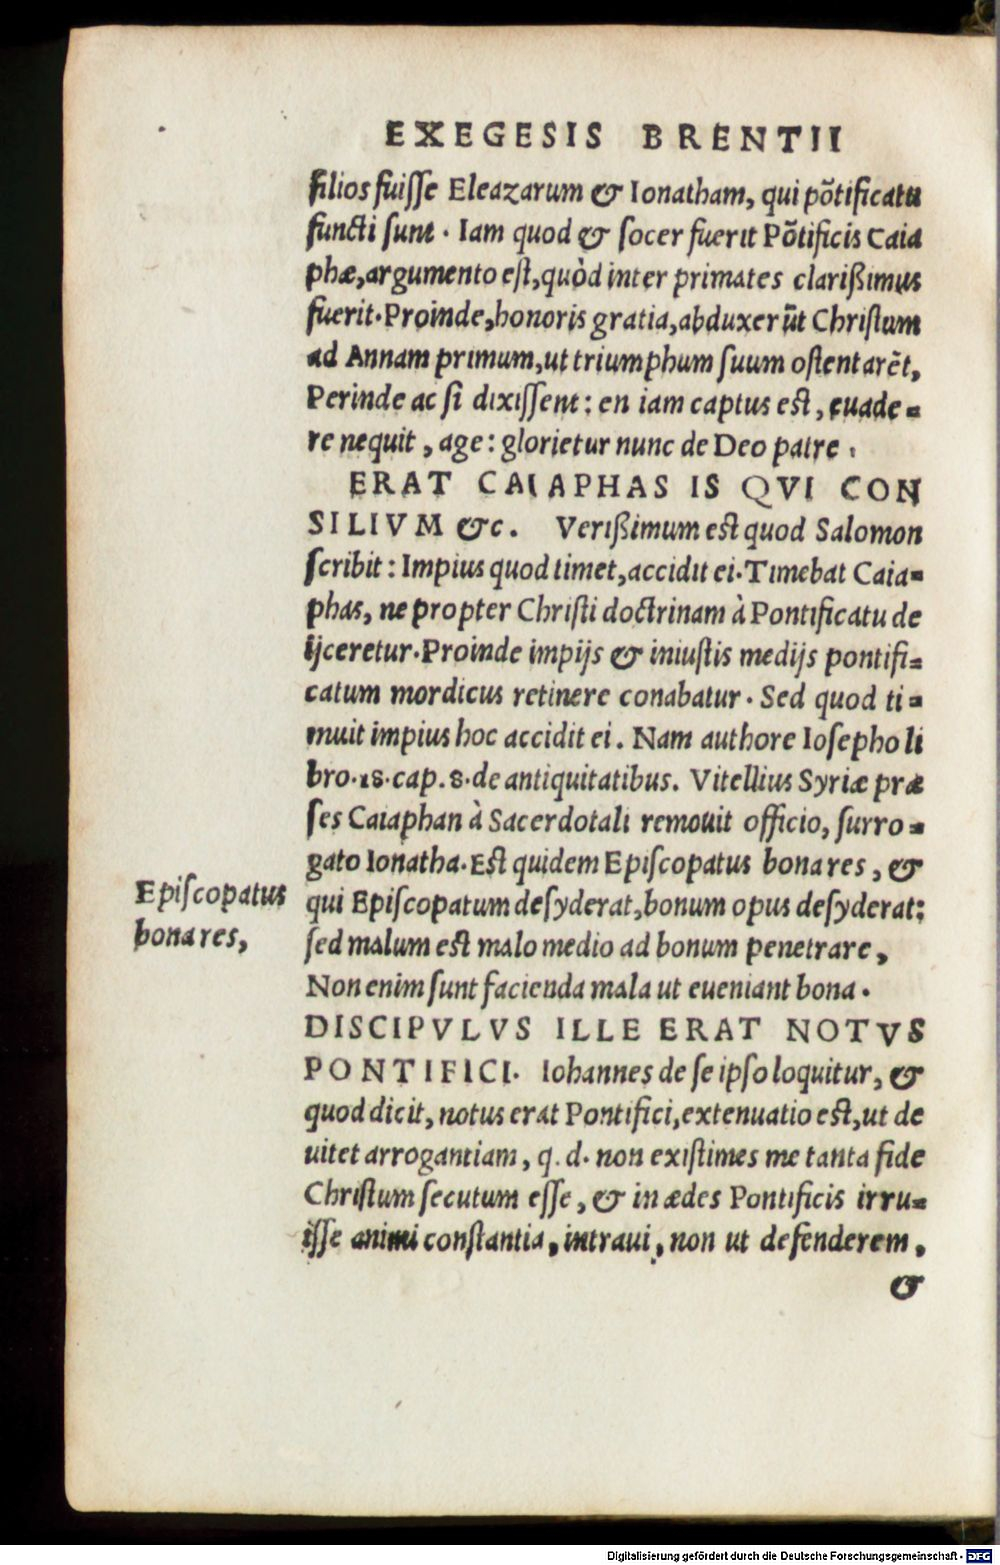 EXEGESIS BRENTII
filios fuiſſe Eleazarum & Ionatham, qui põtificatu
functi sunt. Iam quod & ſocer fuerit Põtificis Caia
phæ, argumento eſt, quòd inter primates clarißimus
fuerit. Proinde, honoris gratia, abduxerũt Chriſtum
ad Annam primum, ut triumphum ſuum oſtentarẽt,
Perinde ac ſi dixiſſent: en iam captus eſt, euade=
re nequit, age: glorietur nunc de Deo patre.
ERAT CAIAPHAS IS QVI CON
SILIVM &c. Verißimum eſt quod Salomon
ſcribit: Impius quod timet, accidit ei. Timebat Caia=
phas, ne propter Chriſti doctrinam à Pontificatu de
ijceretur. Proinde impijs & iniuſtis medijs pontifi=
catum mordicus retinere conabatur. Sed quod ti=
muit impius hoc accidit ei. Nam authore Ioſepho li
bro. 18. cap. 8. de antiquitatibus. Vitellius Syriæ præ
ſes Caiaphan à Sacerdotali remouit officio, ſurro=
gato Ionatha. Eſt quidem Epiſcopatus bona res, &
qui Epiſcopatum deſyderat, bonum opus deſyderat:
ſed malum eſt malo medio ad bonum penetrare,
Non enim ſunt facienda mala ut eueniant bona.
Epiſcopatus
bona res,
DISCIPVLVS ILLE ERAT NOTVS
PONTIFICI. Iohannes de ſe ipſo loquitur, &
quod dicit, notus erat Pontifici, extenuatio eſt, ut de
uitet arrogantiam, q. d. non exiſtimes me tanta fide
Chriſtum ſecutum eſſe, & in ædes Pontificis irru=
iſſe animi conſtantia, intraui, non ut defenderem,
&
Digitalisierung gefördert durch die Deutsche Forschungsgemeinschaft - DFG